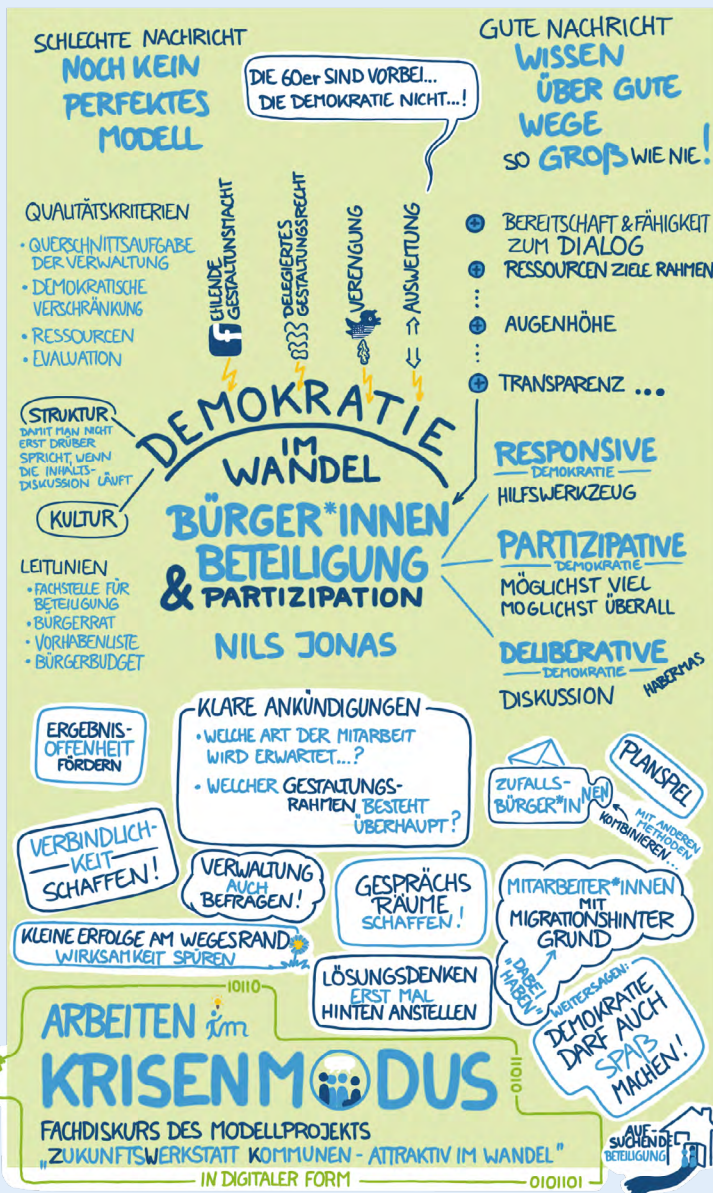 SCHLECHTE NACHRICHT
NOCH KEIN
PERFEKTES
MODELL
DIE 60er SIND VORBEI...
DIE DEMOKRATIE NICHT...!
GUTE NACHRICHT
WISSEN
ÜBER GUTE
WEGE
SO GROß WIE NIE!
QUALITÄTSKRITERIEN
• QUERSCHNITTSAUFGABE
DER VERWALTUNG
• DEMOKRATISCHE
VERSCHRÄNKUNG
• RESSOURCEN
• EVALUATION
fEHLENDE
GESTALTUNSMACHT
DELEGIERTES
GESTALTUNGSRECHT
VERENGUNG
AUSWEITUNG
BEREITSCHAFT & FÄHIGKEIT
ZUM DIALOG
RESSOURCEN ZIELE RAHMEN
AUGENHÖHE
TRANSPARENZ ...
STRUKTUR
DAMIT MAN NICHT
ERST DRÜBER
SPRICHT, WENN
DIE INHALTS-
DISKUSSION LÄUFT
KULTUR
DEMOKRATIE
IM
WANDEL
BÜRGER*INNEN
BETEILIGUNG
& PARTIZIPATION
NILS JONAS
RESPONSIVE
DEMOKRATIE
HILFSWERKZEUG
PARTIZIPATIVE
DEMOKRATIE
MÖGLICHST VIEL
MOGLICHST ÜBERALL
DELIBERATIVE
DEMOKRATIE
DISKUSSION
HABERMAS
LEITLINIEN
• FACHSTELLE FÜR
BETEILIGUNG
• BÜRGERRAT
• VORHABENLISTE
• BÜRGERBUDGET
ERGEBNIS-
OFFENHEIT
FÖRDERN
KLARE ANKÜNDIGUNGEN
• WELCHE ART DER MITARBEIT
WIRD ERWARTET...?
• WELCHER GESTALTUNGS-
RAHMEN BESTEHT
ÜBERHAUPT?
ZUFALLS-
BÜRGER*INNEN
PLANSPIEL
MIT ANDEREN
METHODEN
KOMBINIEREN...
VERBINDLICH-
KEIT
SCHAFFEN!
VERWALTUNG
AUCH
BEFRAGEN!
GESPRÄCHS
RÄUME
SCHAFFEN!
MITARBEITER*INNEN
MIT
MIGRATIONSHINTER
GRUND
"DABEI
HABEN"
KLEINE ERFOLGE AM WEGESRAND
WIRKSAMKEIT SPÜREN
LÖSUNGSDENKEN
ERST MAL
HINTEN ANSTELLEN
WEITERSAGEN:
DEMOKRATIE
DARF AUCH
SPAß
MACHEN!
10110
ARBEITEN im
KRISENMODUS
01011
FACHDISKURS DES MODELLPROJEKTS
„ZUKUNFTSWERKSTATT KOMMUNEN - ATTRAKTIV IM WANDEL"
IN DIGITALER FORM
0101101
AUF-
SUCHENDE
BETEILIGUNG